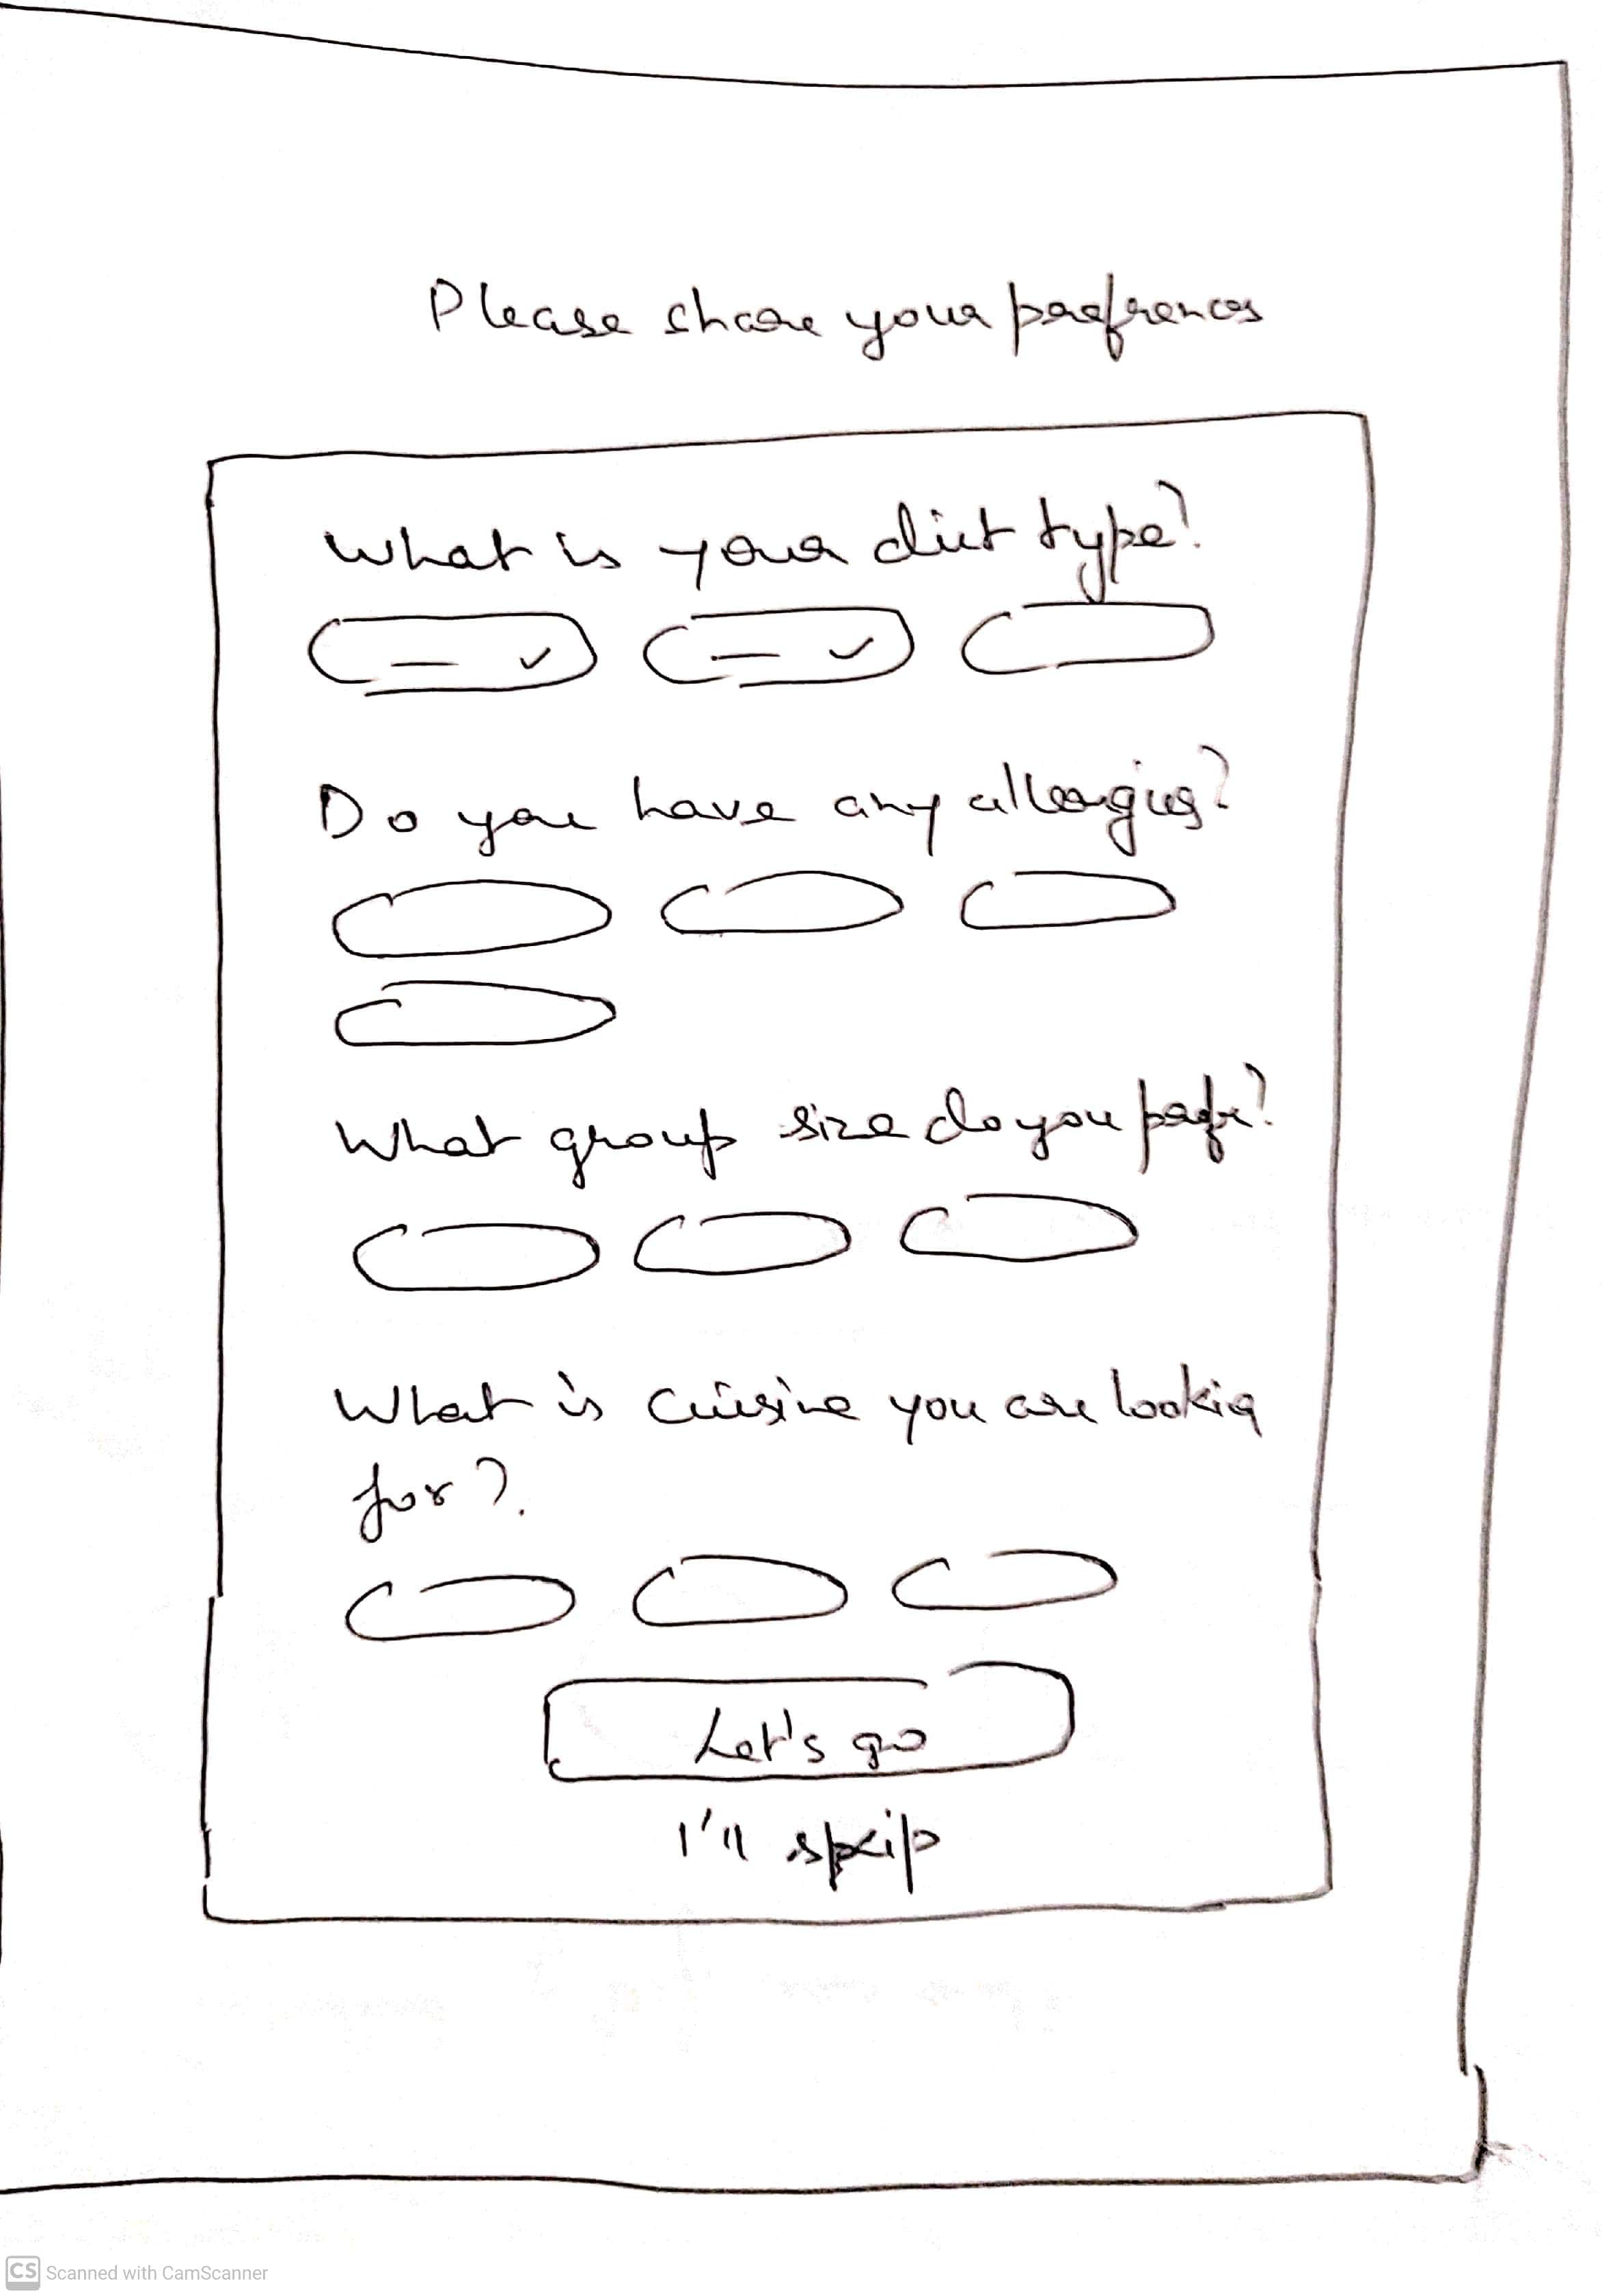 Please share your prefrences
What is your diet type?
Do you have any allergies?
What group size do you prefer?
What is cuisine you are lookig
for?
Let's go
I'll skip
CS Scanned with CamScanner